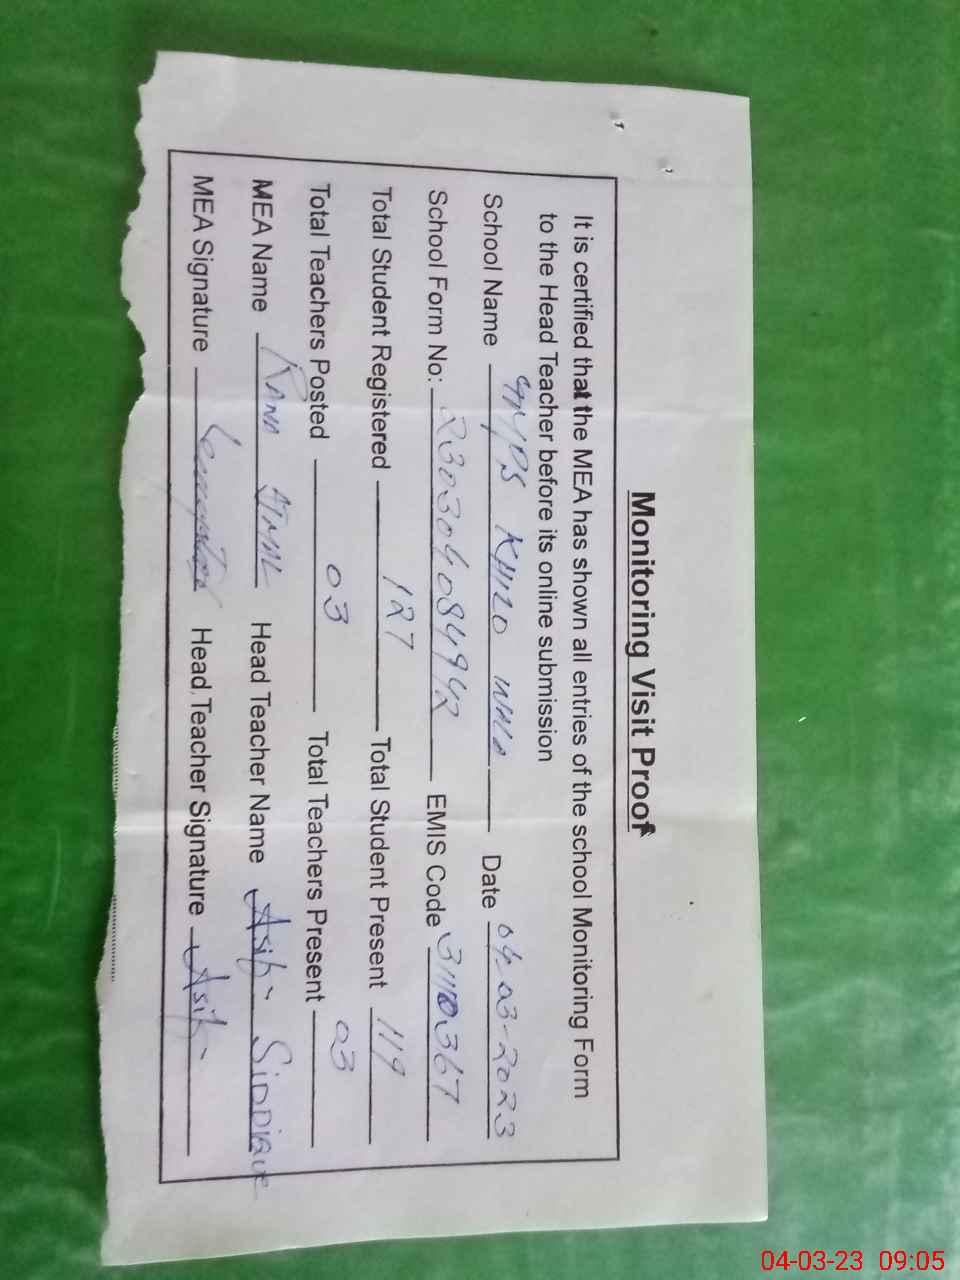 Monitoring Visit Proof
It is certified that the MEA has shown all entries of the school Monitoring Form
to the Head Teacher before its online submission
School Name GMPS KHIZO WALA Date 04-03-2023
School Form No: 230304084942 EMIS Code 31110367
Total Student Registered 127 Total Student Present 119
Total Teachers Posted 03 Total Teachers Present 03
MEA Name RANA AJMAL Head Teacher Name Asif SIDDIQUE
MEA Signature Head Teacher Signature Asif
04-03-23 09:05